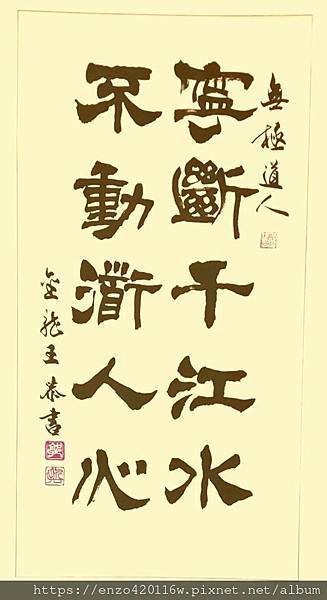 無極道人
寧斷千江水
不動道人心
金龍王恭書
https://enzo420116w.pixnet.net/album